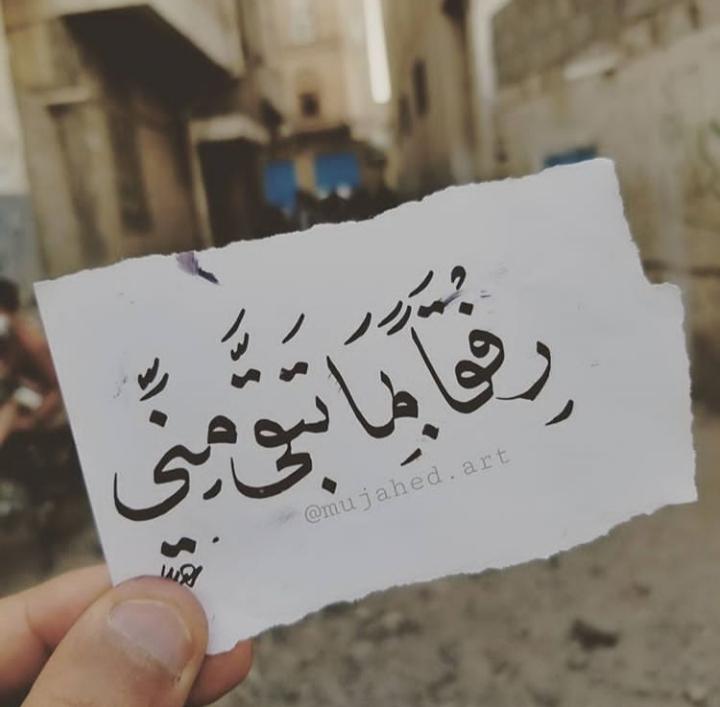 رِفْقًا بِمَا تَبَقَّى مِنِّي
@mujahed.art